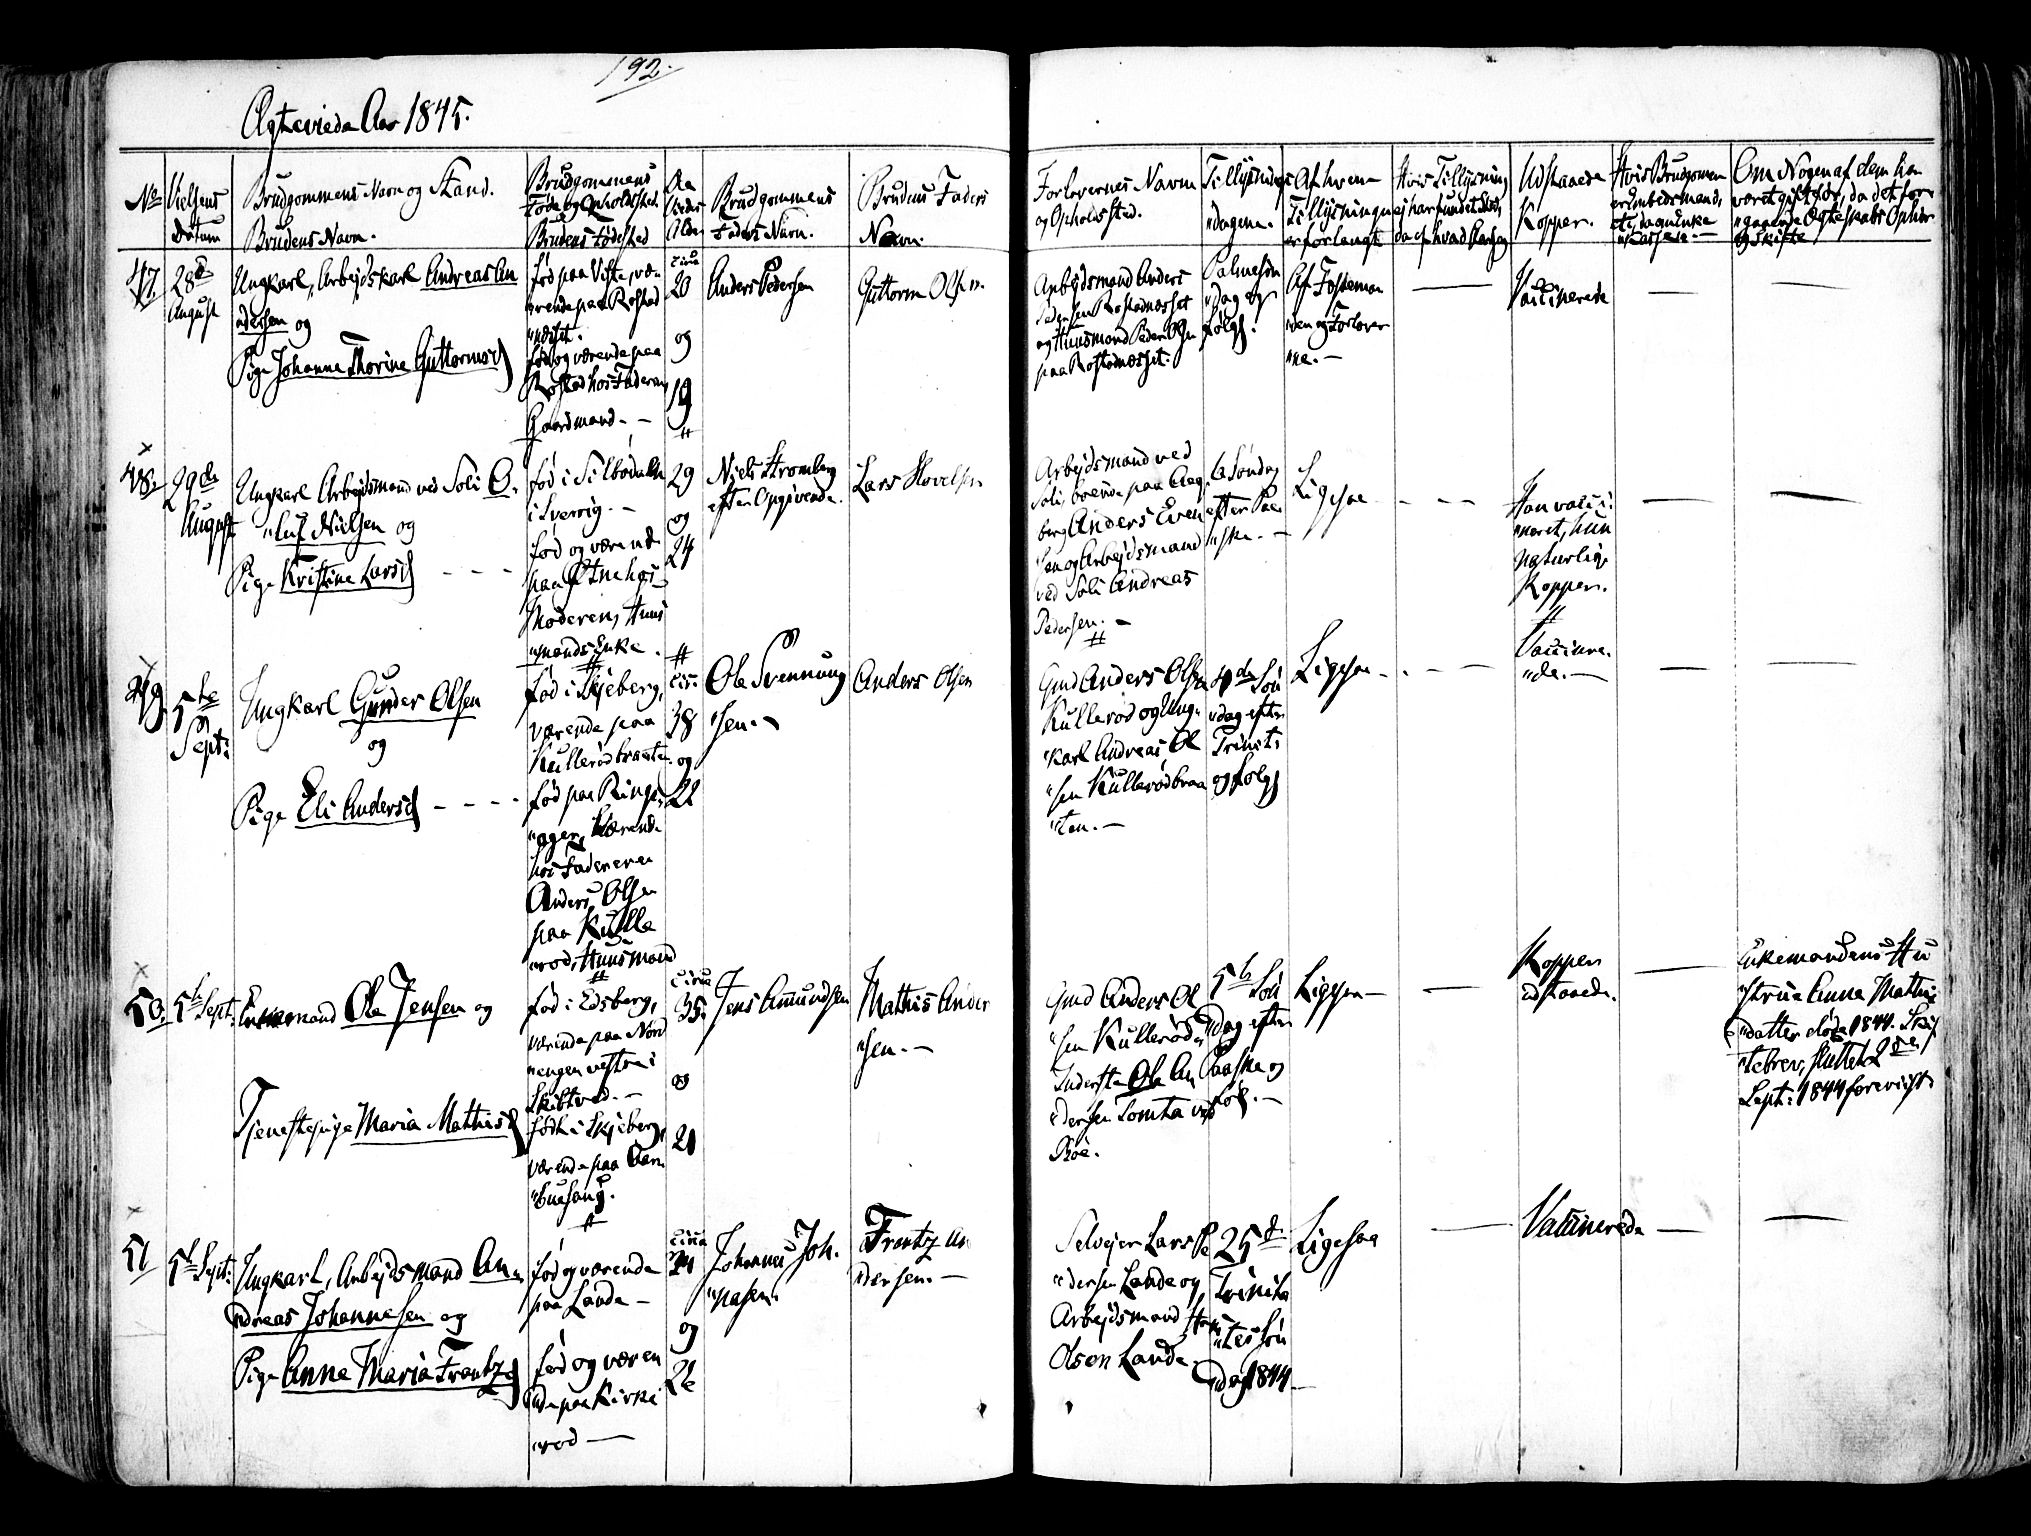 192.
Ægteviede Aar 1845.
No
Vielsens
Datum
Brudgommens Navn og Stand.
Brudens Navn.
Brudgommens
Føde og Opholdsted.
Brudens Fødested
Brudgommens
Faders Navn.
Brudens Faders
Navn.
Forlovernes Navn
og Opholdssted.
Tillysnings
"dagene.
Af hvem
Tillysningen
er forlangt
Hvis Tillysning
ej har fundet Sted,
da af hvad Aarsag
Udstaaede
Kopper.
Hvis Brudgommen
er Embedsmand,
"kassen.
Om Nogen af dem har
været gift før, da det for
"gaaende Ægteskabs Ophør
og Skifte
47
28de
August
Ungkarl, Arbejdskarl Andreas An
"dersen og
Pige Johanne Thorine Guttormsd
født og værende paa
Rostad hos Faderen,
Gaardmand. —
circa
20
og
19
Anders Pedersen
Guttorm Olsen.
Arbejdsmand Anders
Pedersen Rostadnæsset
og Huusmand Peder Olsen
paa Rostadnæsset.
Palmesøn
"dag og
følg.
Af Festeman
"den og Forlover
"ne. —
Vaccinerede
48.
29de
August
Ungkarl Arbejdsmand ved Soli O.
"luf Nielsen og
Pige Kristine Larsd
født i Silbodalen
i Sverrig. —
født og værende
paa Ø Tune hos
Moderen, Huus
"mands Enke.
29
og
24
Niels Stromberg
efter Opgivende.
Lars Hovelsen
Arbejdsmand ved
Soli, boende paa Aag.
berg Anders Even
"sen og Arbejdsmand
ved Soli Andreas
Pedersen. —
6 Søndag
efter Paa
"ske. —
Ligesaa
Han vacci:
"neret, hun
naturlige
Kopper.
49.
5te
Sept:
Ungkarl Gunder Olsen
og
Pige Eli Andersd
født i Skjeberg,
værende paa
Kullerødbraaten
født paa Ringe
"ager, værende
hos Faderen
Anders Olsen
paa Kulle
"rød, Huusmand
cir.
38
og
22
Ole Svennung
"sen. —
Anders Olsen
Gmd Anders Olsen
Kullerød og Ung-
"karl Andreas Ol
"sen Kullerødbraa
"ten. —
4de Søn
"dag efter
Trinit:
og følg
Ligesaa
Vaccinere
"de. —
50.
5te Sept:
Enkemand Ole Jensen og
Tjenestepige Maria Mathisd
født i Edsberg,
værende paa Nord
"engen vestre i
Skibtved. —
født i Skjeberg,
værende paa Aarn
"buehaug.
circa
35.
og
21
Jens Amundsen
Mathis Ander
"sen. —
Gmd Anders Ol
"sen Kullerød og
Inderste Ole An
"dersen Tomta ved
Bøe.
5te Søn
"dag efter
Paaske og
følg. —
Ligesaa —
Kopper
udstaaede.
Enkemandens Hu
"strue Anne Mathis
"datter døde 1844. Skif
"tebrev, sluttet 2den
Sept: 1844 forevist.
51
5te Sept:
Ungkarl, Arbejdsmand An-
"dreas Johannesen og
Pige Anne Maria Frantzd
født og værende
paa Lande —
født og væren
"de paa Kirke
"rød —
circa
24
og
22
Johannes Joh.
"nesen.
Frantz An
"dersen. —
Selvejer Lars Pe
"dersen Lande og
Arbejdsmand Hans
Olsen Lande.
25de
Trinita
"tes Søn
"dag 1844 —
Ligesaa
Vaccinerede